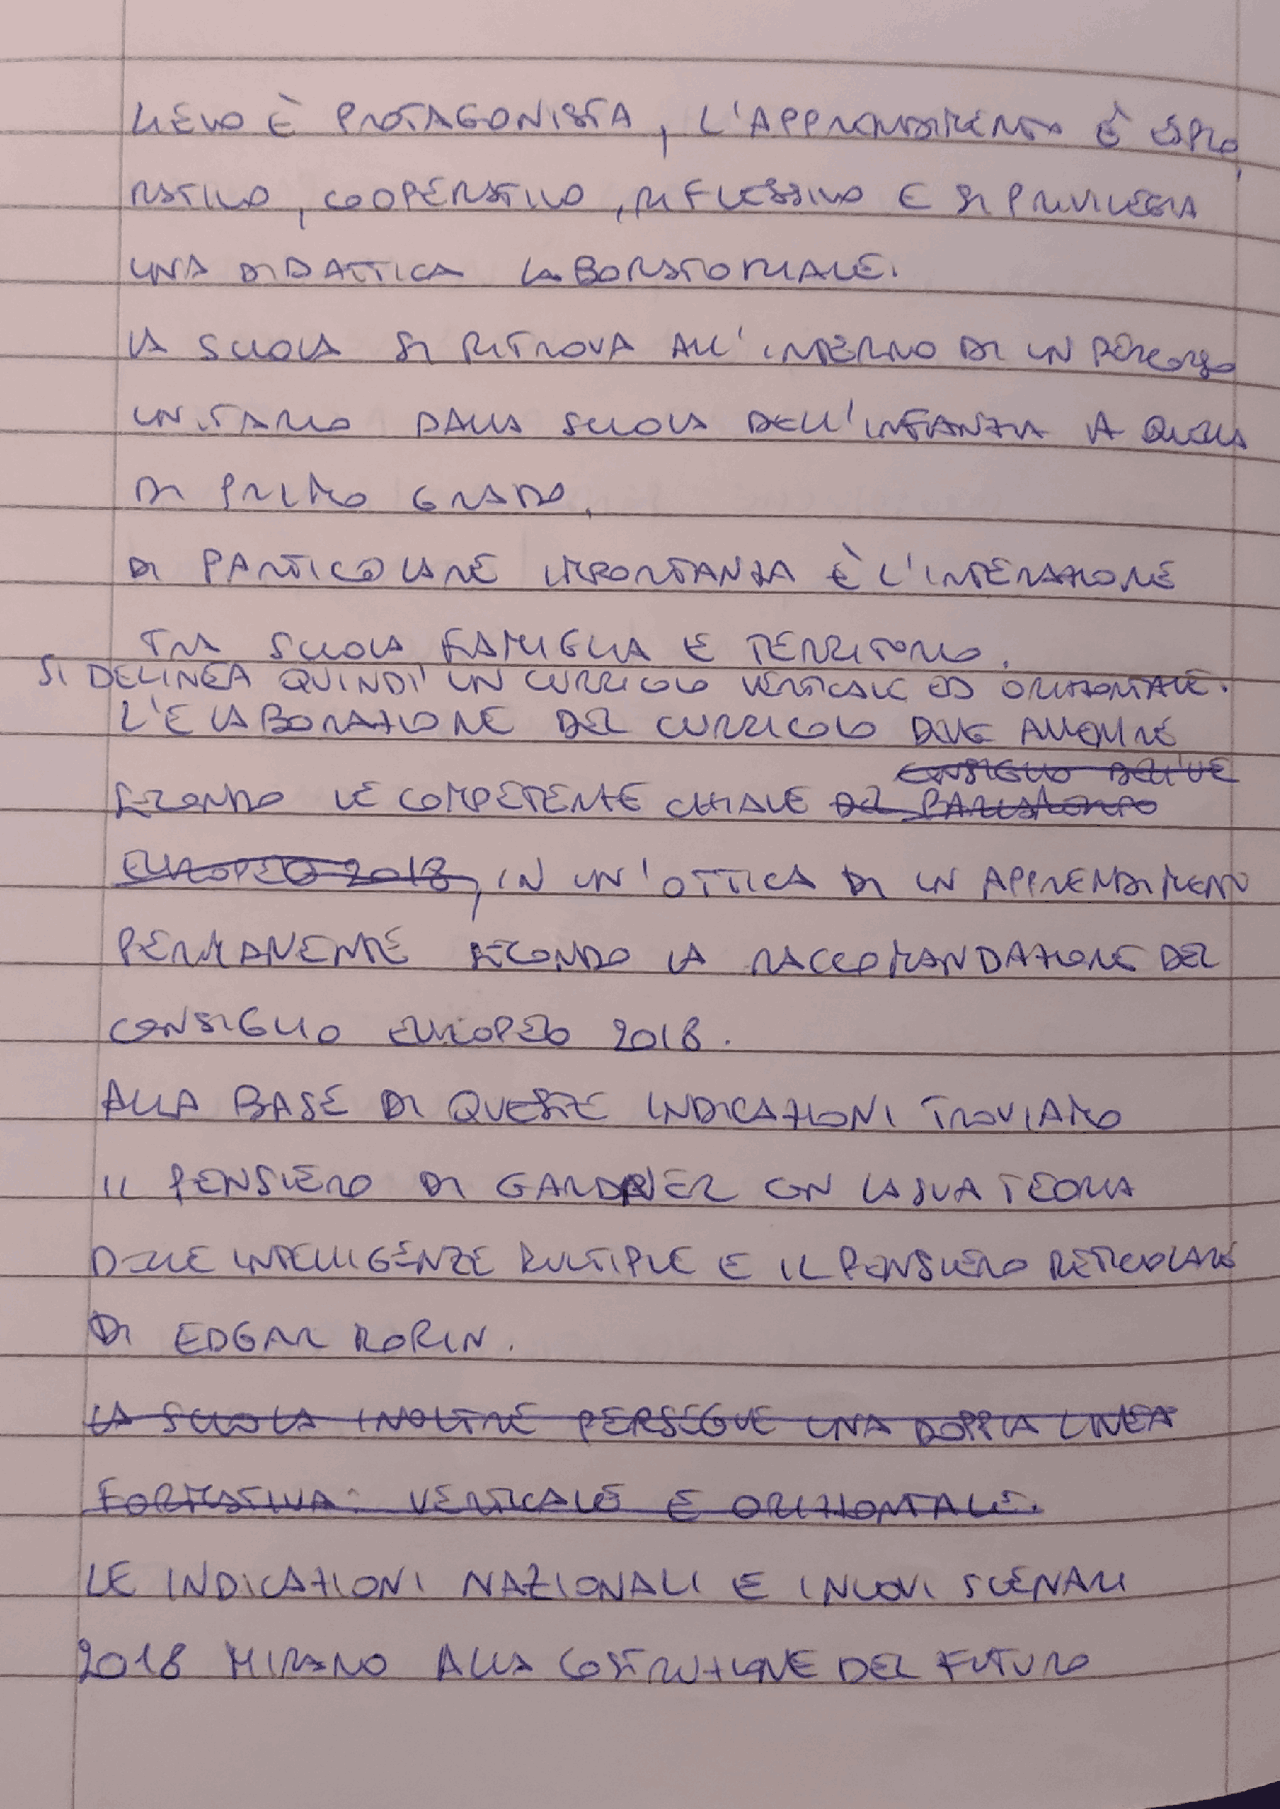 LIEVO È PROTAGONISTA, L'APPRENDIMENTO È ESPLO
RATIVO, COOPERATIVO, RIFLESSIVO E SI PRIVILEGIA
UNA DIDATTICA LABORATORIALE.
LA SCUOLA SI RITROVA ALL'INTERNO DI UN PERCORSO
UNITARIO DALLA SCUOLA DELL'INFANZIA A QUELLA
DI PRIMO GRADO.
DI PARTICOLARE IMPORTANZA È L'INTERAZIONE
TRA SCUOLA FAMIGLIA E TERRITORIO.
SI DELINEA QUINDI UN CURRICOLO VERTICALE ED ORIZZONTALE.
L'ELABORAZIONE DEL CURRICOLO DEVE AVVENIRE
CONSIGLIO DELL'UE
SECONDO LE COMPETENZE CHIAVE DEL PARLAMENTO
EUROPEO 2018, IN UN'OTTICA DI UN APPRENDIMENTO
PERMANENTE SECONDO LA RACCOMANDAZIONE DEL
CONSIGLIO EUROPEO 2018.
ALLA BASE DI QUESTE INDICAZIONI TROVIAMO
IL PENSIERO DI GARDNER CON LA SUA TEORIA
DELLE INTELLIGENZE MULTIPLE E IL PENSIERO RETICOLARE
DI EDGAR MORIN.
LA SCUOLA INOLTRE PERSEGUE UNA DOPPIA LINEA
FORMATIVA: VERTICALE E ORIZZONTALE.
LE INDICAZIONI NAZIONALI E I NUOVI SCENARI
2018 MIRANO ALLA COSTRUZIONE DEL FUTURO